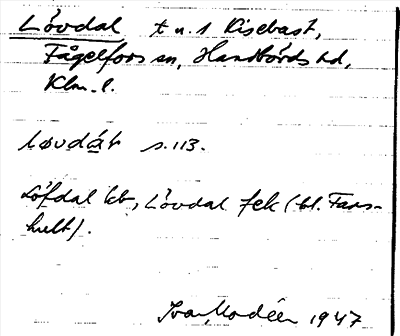 Lövdal t u. 1 Kisebast,
Fågelfors sn, Handbörds hd,
Klm. l.
løvdαt s. 113.
Löfdal kb, Lövdal jek (bl. Fars-
hult).
Ivar Modéer 1947